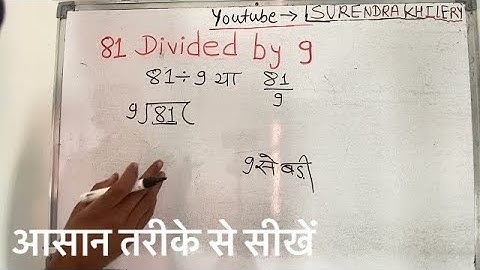 Youtube → SURENDRA KHILERY
81 Divided by 9
81÷9 या 81/9
9√81(
9 से बड़ी
आसान तरीके से सीखें